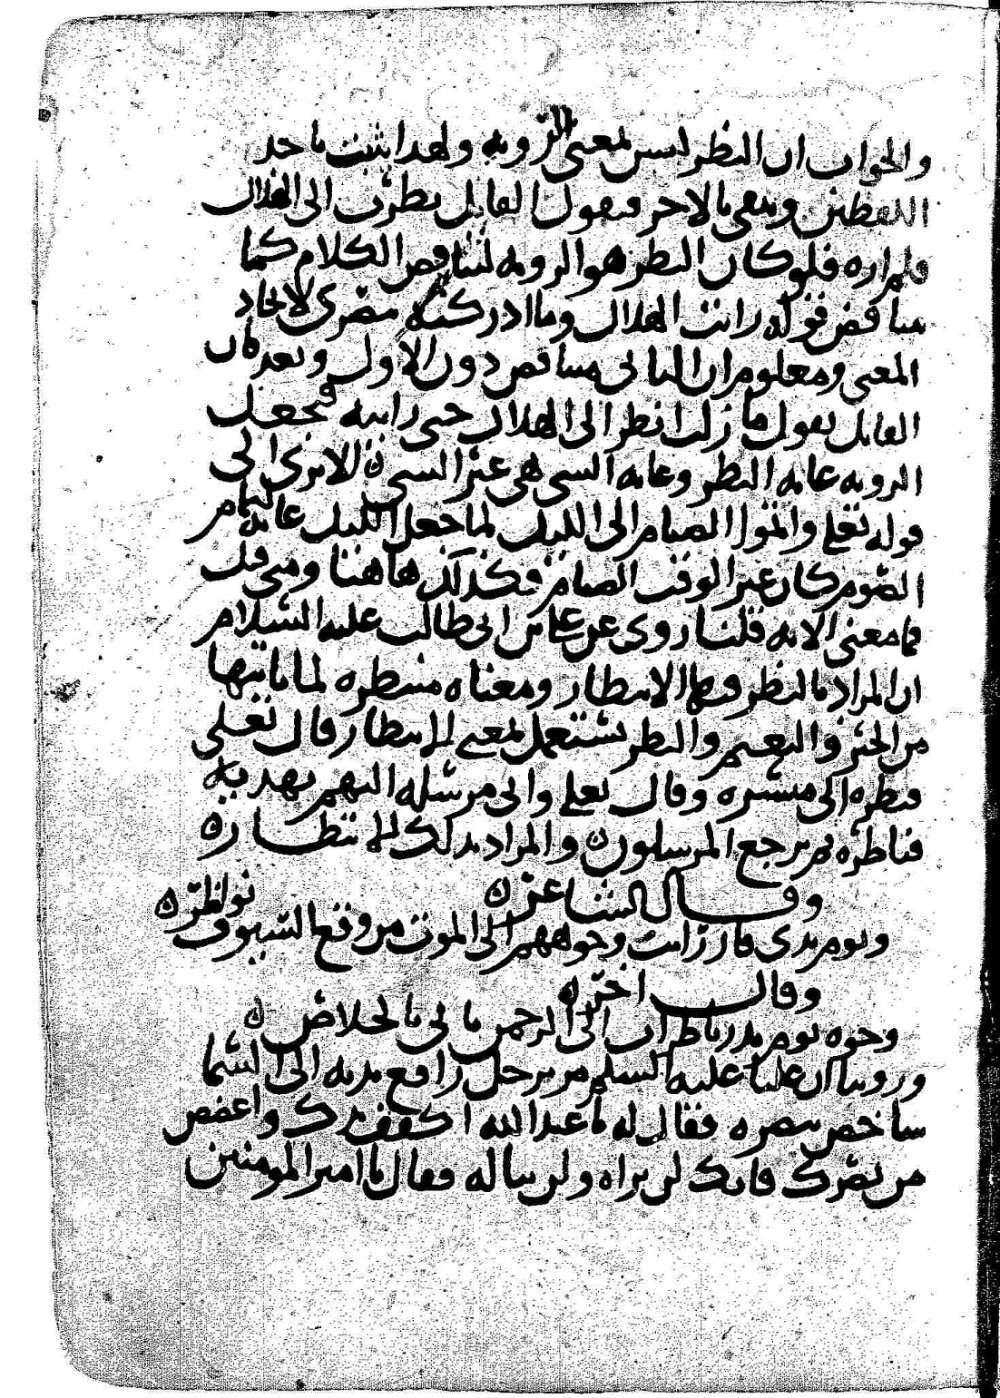 والجواب ان النظر ليس بمعنى الروية ولهذا يثبت باحد
اللفظين وينفى بالاخر فيقول القايل نظرت الى الهلال
فلم اراه فلو كان النظر هو الروية لتناقض الكلام كما
يتناقض قوله رايت الهلال وما ادركته ببصرى لاتحاد
المعنى ومعلوم ان الثانى متناقض دون الاول وبعد فان
القايل يقول ما زلت انظر الى الهلال حتى رايته فيجعل
الروية غاية النظر وغاية الشى هى غير الشى ه الا ترى الى
قوله تعلى واتموا الصيام الى الليل لما جعل الليل غاية لتمام
الصوم كان غير الوقت الصيام فكذلك هاهنا ومتى قيل
فما معنى الاية قلنا روى عن على بن ابى طالب عليه السلام
ان المراد بالنظر فيها الانتظار ومعناه منتظرة لما ياتيها
من الخير والنعيم والنظر يستعمل بمعنى الانتظار قال تعلى
فنظرة الى ميسرة وقال تعلى وانى مرسلة اليهم بهدية
فناظرة بم يرجع المرسلون ه والمراد بذلك الانتظار ه
وقال الشاعر ه
ويوم بذى قار رايت وجوههم الى الموت من وقع السيوف نواظر ه
وقال اخر ه
وجوه يوم بدر ناظرات الى الرحمن ياتى بالخلاص ه
وروينا ان عليا عليه السلم مر برجل رافع يديه الى السما
شاخص ببصره فقال له يا عبد الله اكفف يدك واغضض
من بصرك فانك لن تراه ولن تناله فقال يا امير المومنين